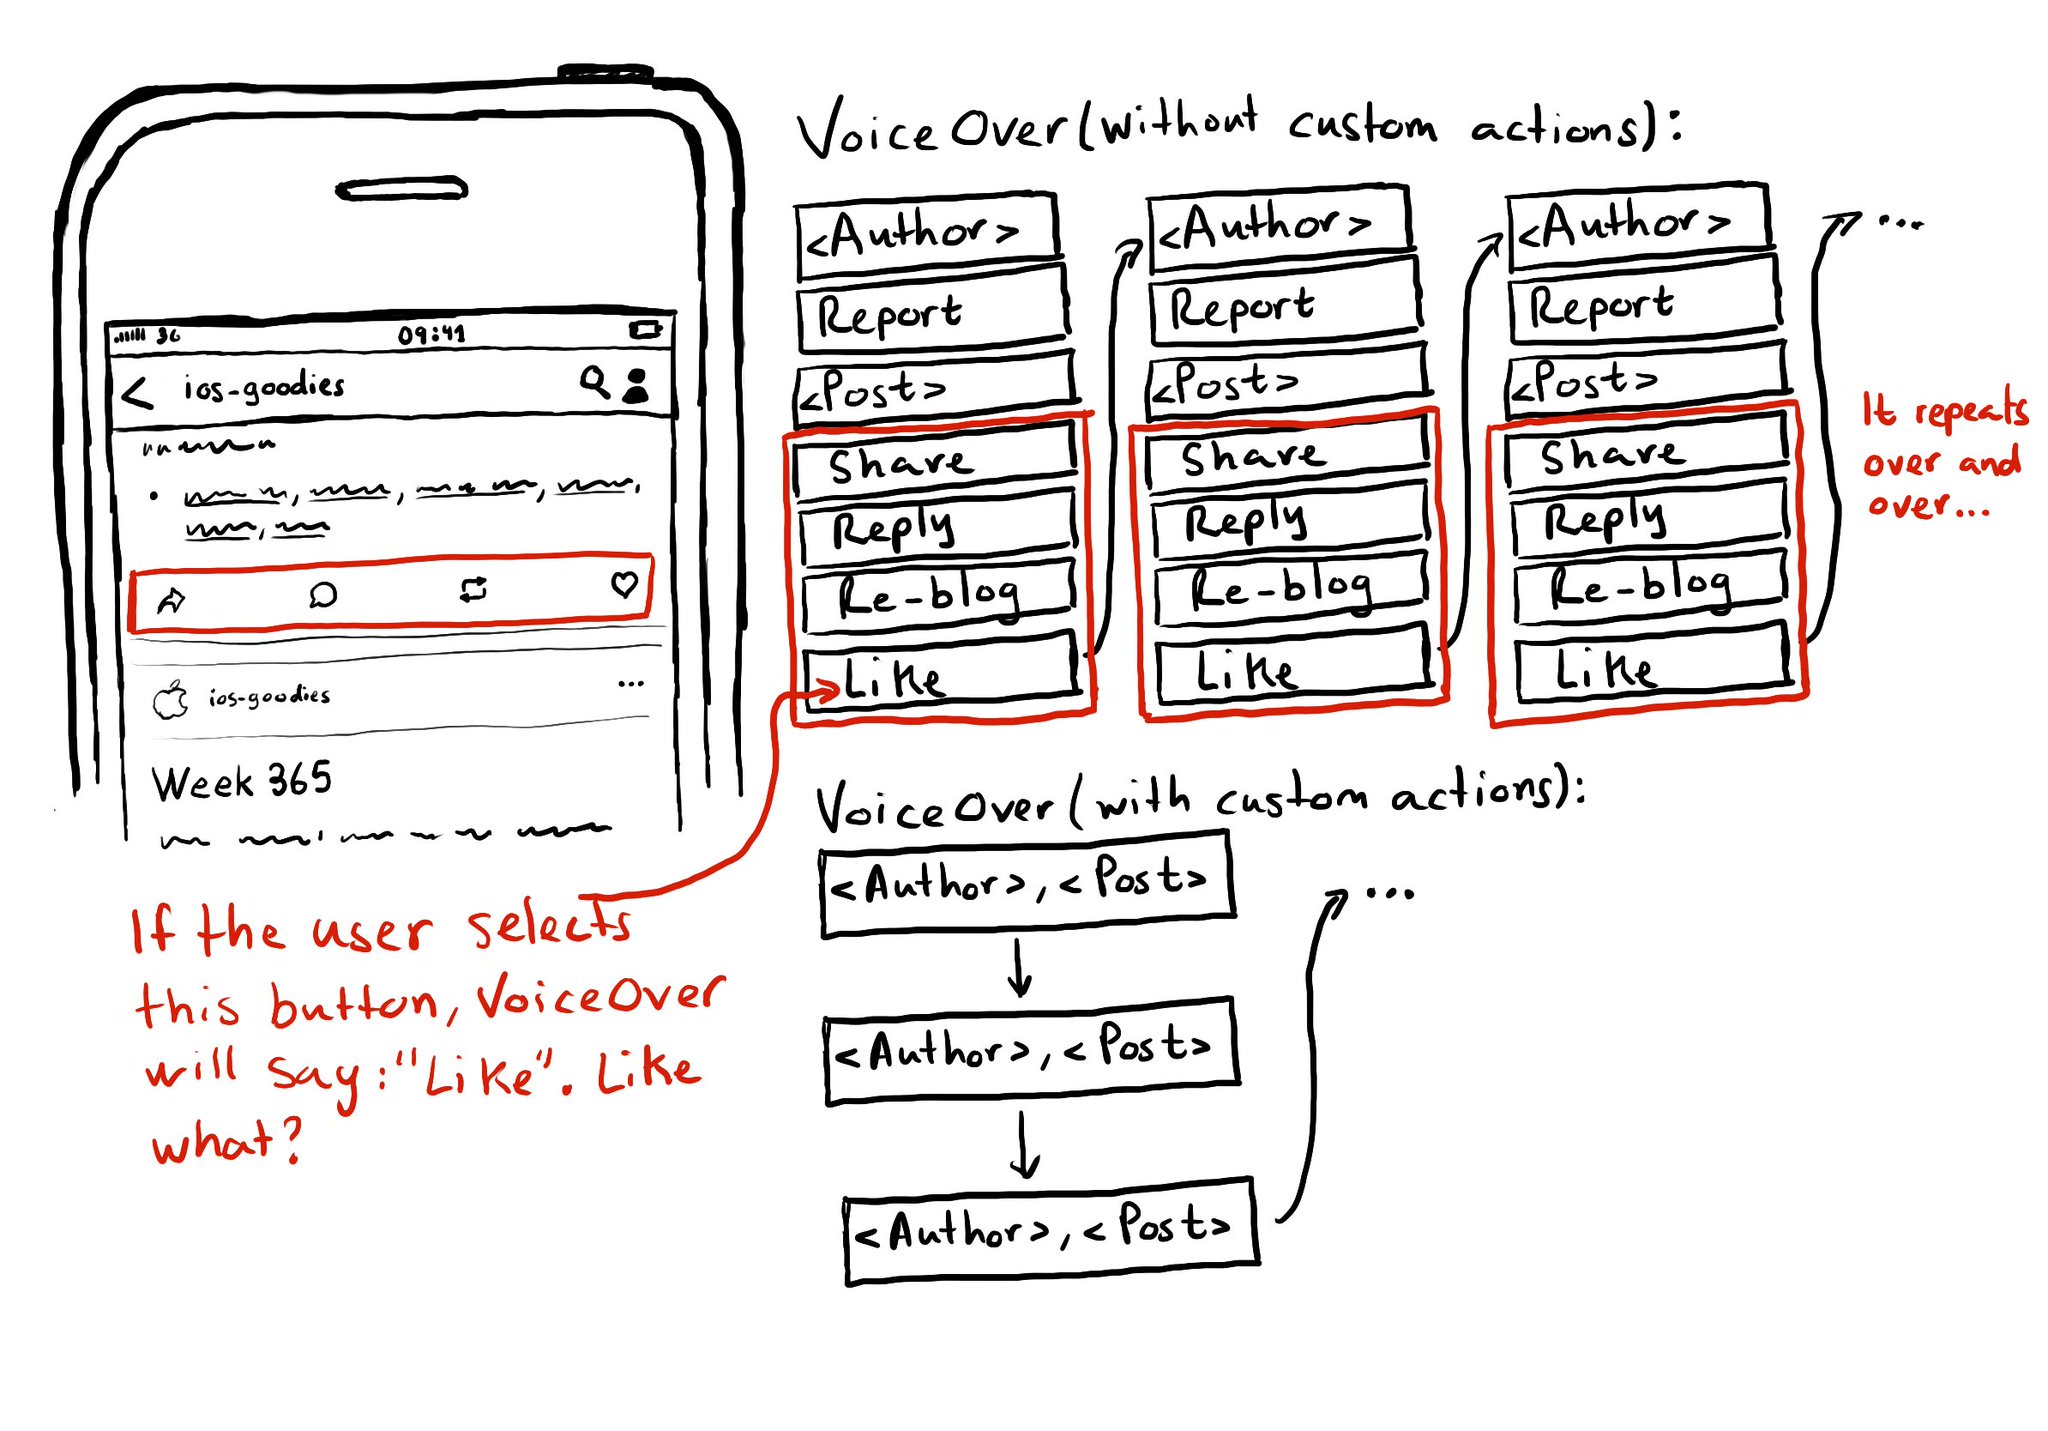 3G 09:41
ios-goodies
ios-goodies
...
Week 365
If the user selects
this button, VoiceOver
will say: "Like". Like
what?
VoiceOver (without custom actions):
<Author>
Report
<Post>
Share
Reply
Re-blog
Like
<Author>
Report
<Post>
Share
Reply
Re-blog
Like
<Author>
Report
<Post>
Share
Reply
Re-blog
Like
...
It repeats
over and
over...
VoiceOver (with custom actions):
<Author>, <Post>
<Author>, <Post>
<Author>, <Post>
...